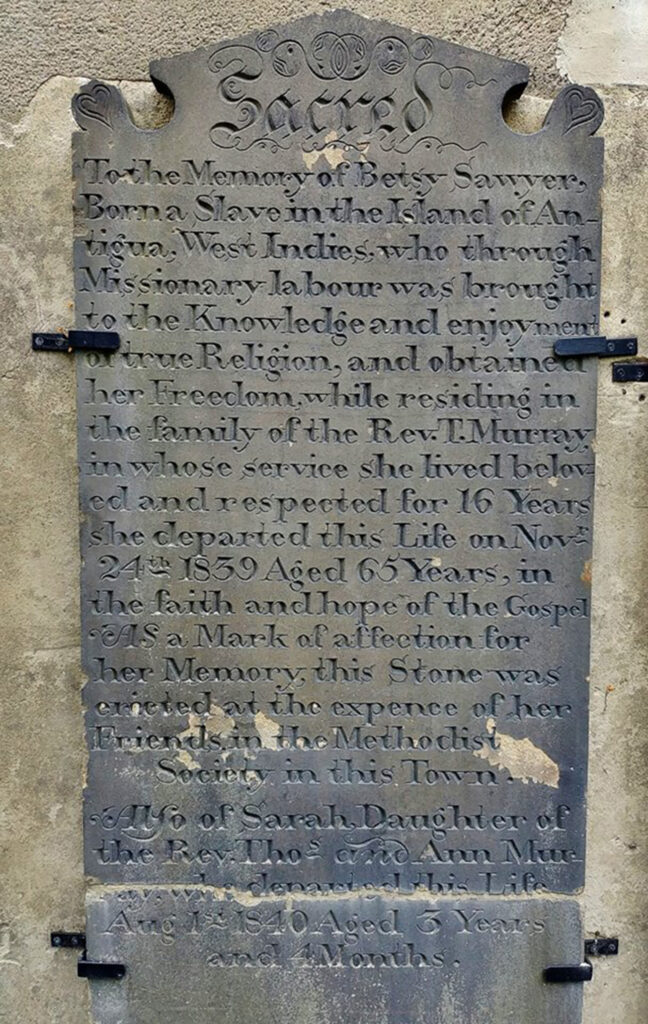 Sacred
To the Memory of Betsy Sawyer,
Born a Slave in the Island of An-
tigua, West Indies, who through
Missionary labour was brought
to the Knowledge and enjoyment
of true Religion, and obtained
her Freedom, while residing in
the family of the Rev. T. Murray,
in whose service she lived belov-
ed and respected for 16 Years
she departed this Life on Novr
24th 1839 Aged 65 Years, in
the faith and hope of the Gospel
As a Mark of affection for
her Memory, this Stone was
erected at the expence of her
Friends, in the Methodist
Society in this Town.
Also of Sarah, Daughter of
the Rev. Thos and Ann Mur-
ray, who departed this Life
Aug 1st 1840 Aged 3 Years
and 4 Months.